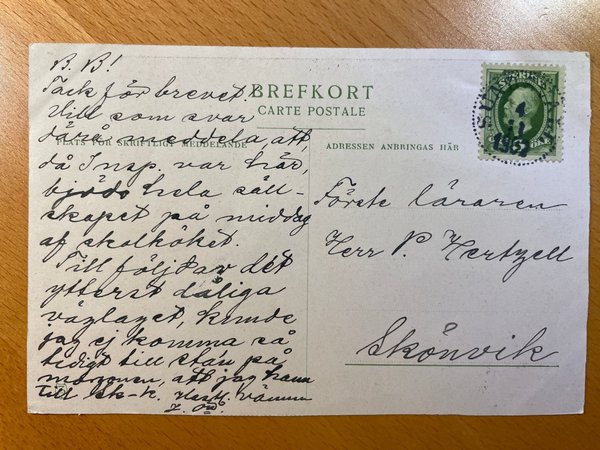 B. B!
Tack för brevet.
Vill som svar
därå meddela, att
då Insp. var här,
bjöds hela säll-
skapet på middag
af skolköket.
Till följd av det
ytterst dåliga
väglaget, kunde
jag ej komma så
tidigt till stan på
morgonen, att jag hann
till sk-k.
BREFKORT
CARTE POSTALE
PLATS FÖR SKRIFTLIGT MEDDELANDE
ADRESSEN ANBRINGAS HÄR
4
11
Förste läraren
Herr P. Hertzell
Skönvik